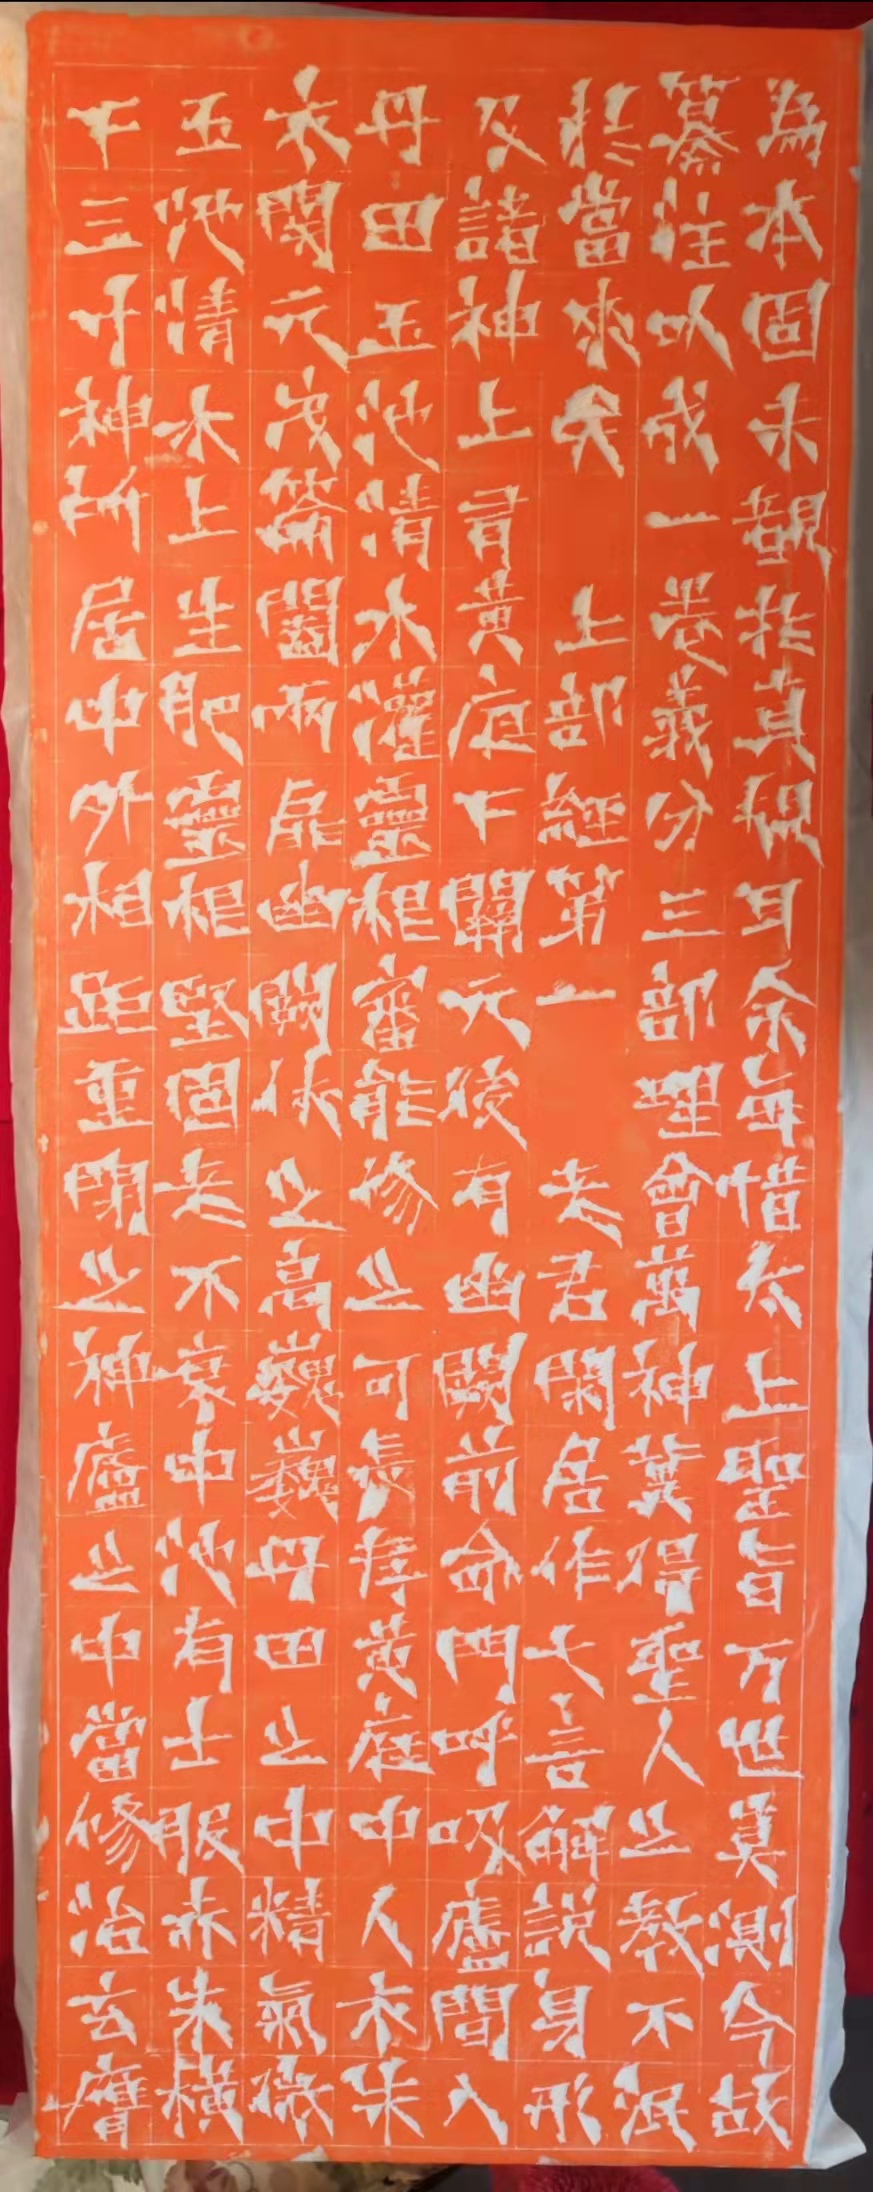 為本固未覩於真得耳余每惜太上聖旨万世莫測今故
纂注以成一卷義分三部理會萬神冀得聖人之教不泯
於當來矣 上部經第一 老君閑居作七言解説身形
及諸神上有黃庭下關元後有幽闕前命門呼吸廬間入
丹田玉池清水灌靈根審能修之可長存黃庭中人衣朱
衣関元茂籥闔兩扉幽闕俠之高巍巍丹田之中精氣微
玉池清水上生肥靈根堅固老不衰中池有士服赤朱橫
下三寸神所居中外相距重閉之神廬之中當修治玄膺